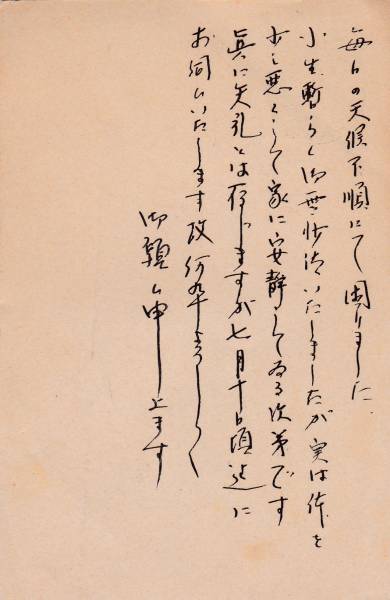 毎日の天候不順にて困りました
小生暫らく御無沙汰いたしましたが実は体を
少々悪くして家に安静してゐる次第です
真に失礼とは存じますが七月十日頃迄に
お伺いいたします故何卒よろしく
御願い申し上ます